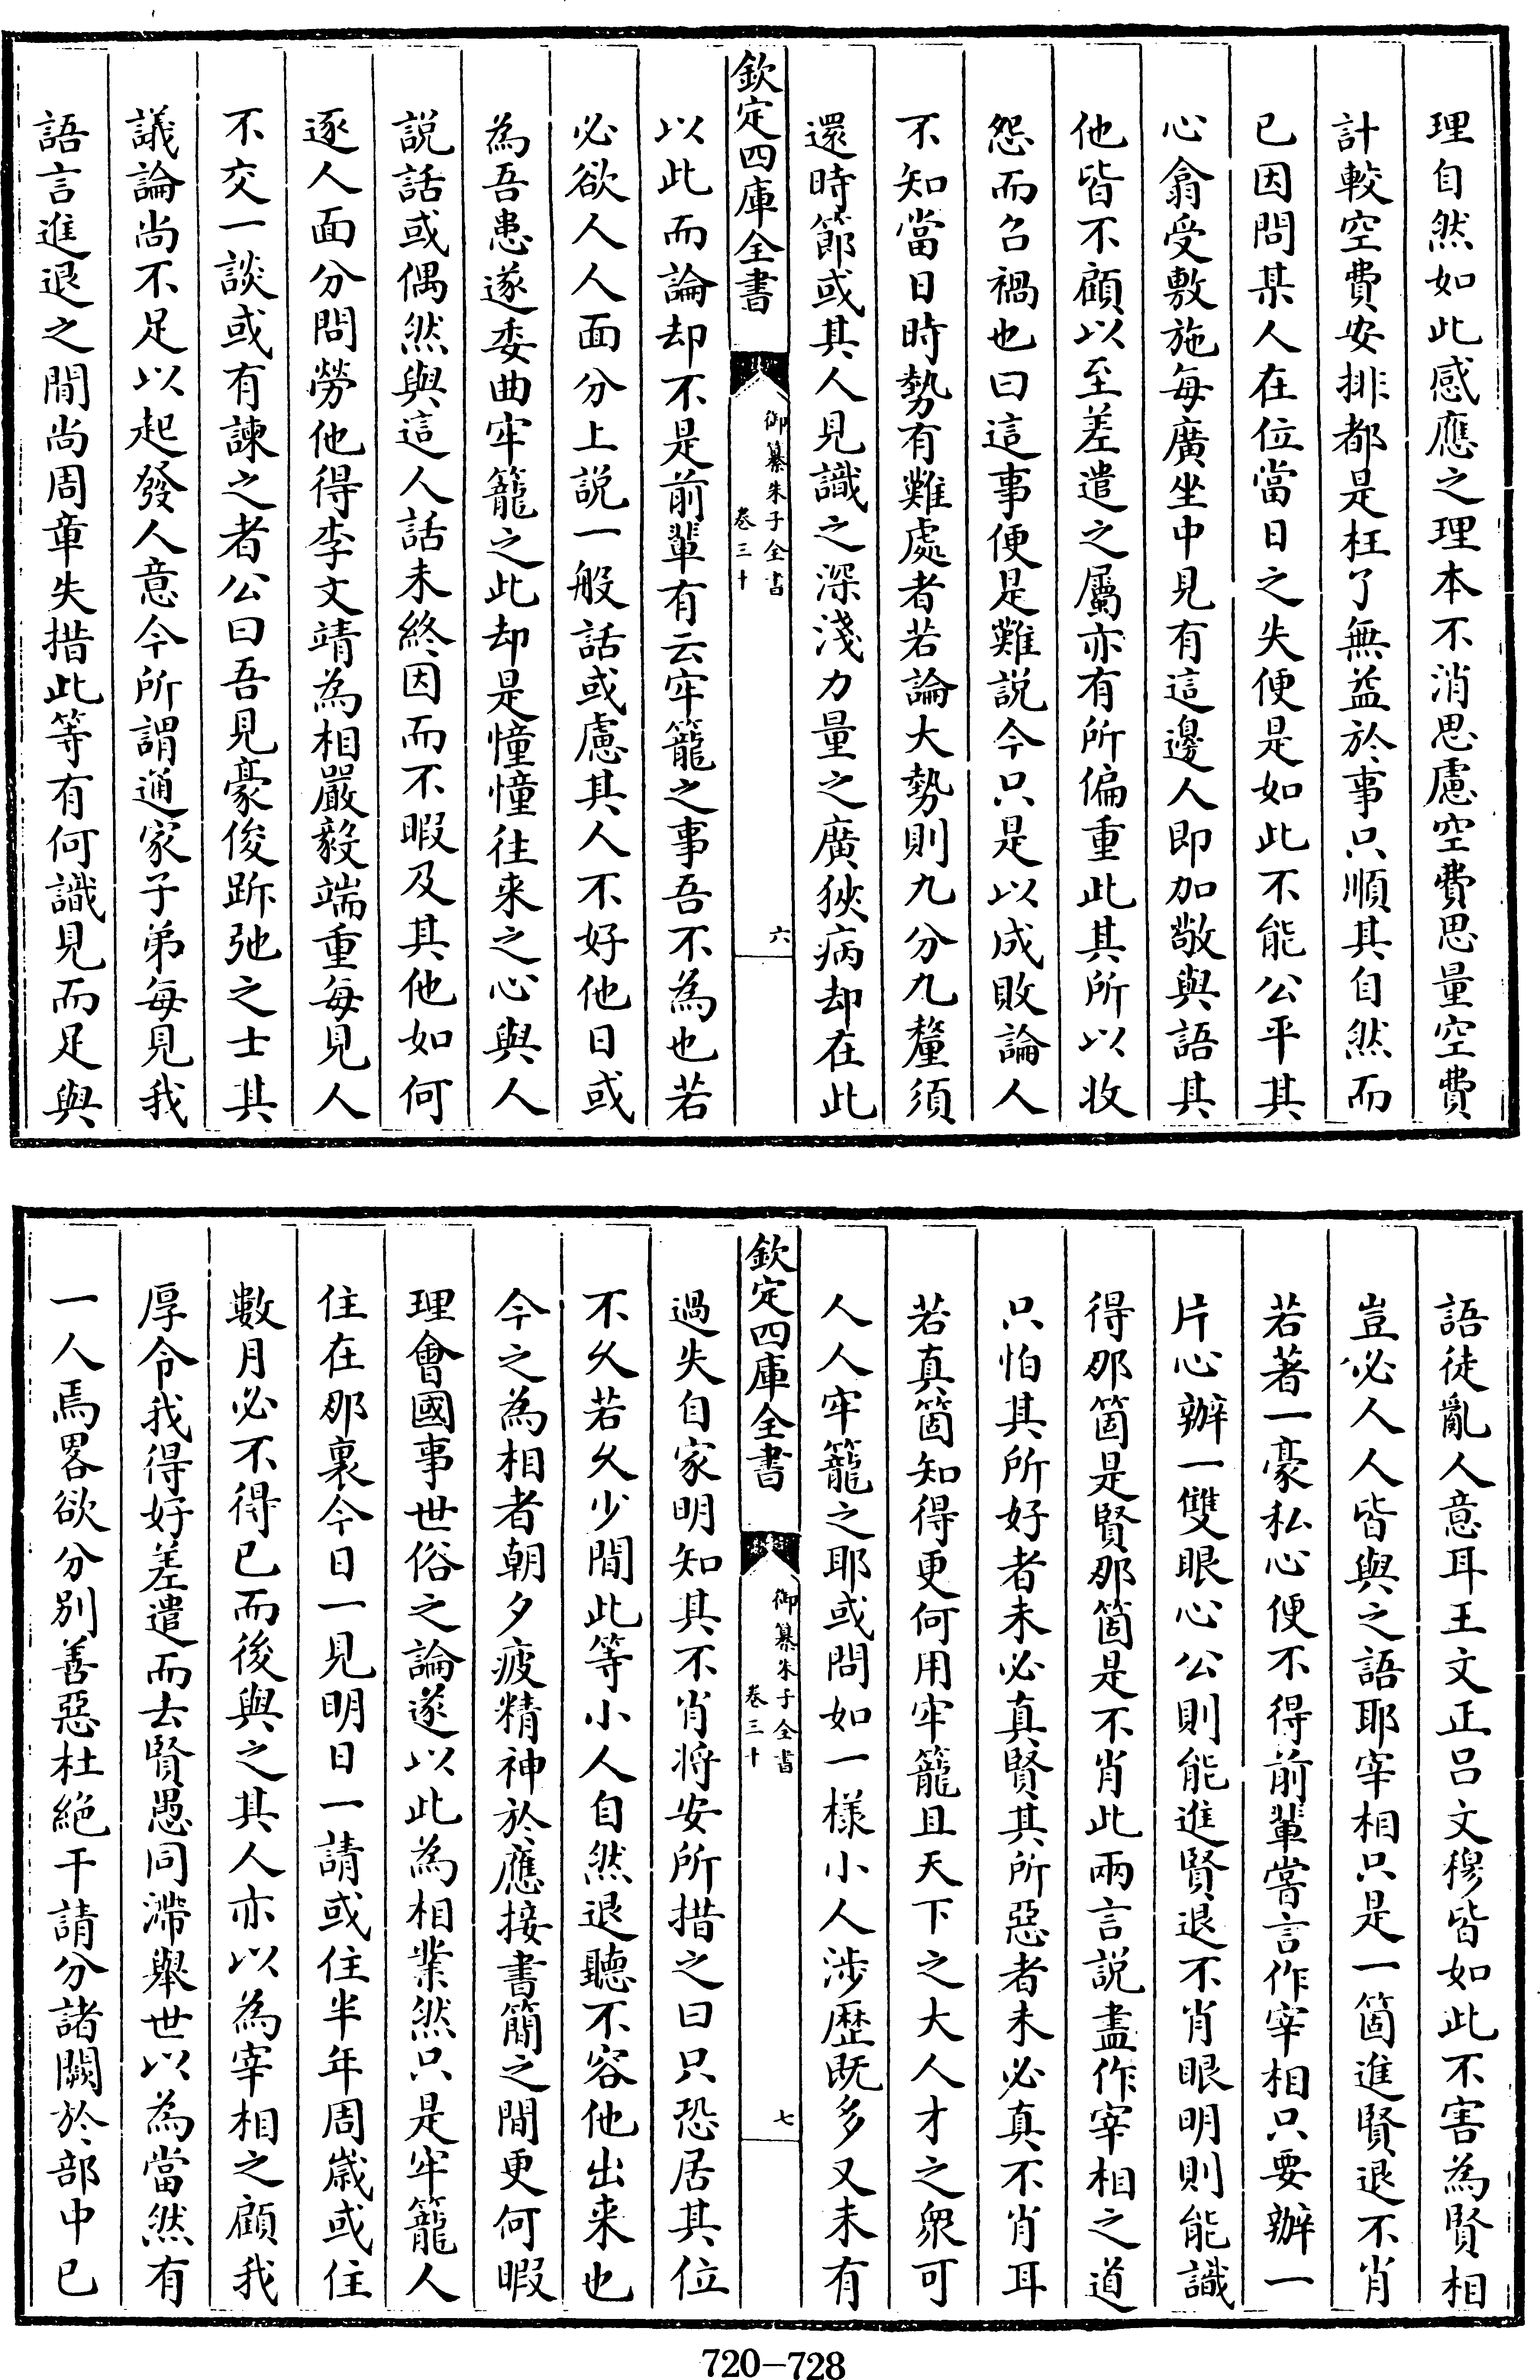 理自然如此感應之理本不消思慮空費思量空費
計較空費安排都是枉了無益於事只順其自然而
已因問某人在位當日之失便是如此不能公平其
心翕受敷施每廣坐中見有這邊人即加敬與語其
他皆不顧以至差遣之屬亦有所偏重此其所以收
怨而召禍也曰這事便是難説今只是以成敗論人
不知當日時勢有難處者若論大勢則九分九釐須
還時節或其人見識之深淺力量之廣狹病却在此
欽定四庫全書
御纂朱子全書
卷三十
六
以此而論却不是前輩有云牢籠之事吾不為也若
必欲人人面分上説一般話或慮其人不好他日或
為吾患遂委曲牢籠之此却是憧憧往来之心與人
説話或偶然與這人話未終因而不暇及其他如何
逐人面分問勞他得李文靖為相嚴毅端重每見人
不交一談或有諫之者公曰吾見豪俊跅弛之士其
議論尚不足以起發人意今所謂通家子弟每見我
語言進退之間尚周章失措此等有何識見而足與
語徒亂人意耳王文正吕文穆皆如此不害為賢相
豈必人人皆與之語耶宰相只是一箇進賢退不肖
若著一豪私心便不得前輩嘗言作宰相只要辦一
片心辦一雙眼心公則能進賢退不肖眼明則能識
得那箇是賢那箇是不肖此兩言説盡作宰相之道
只怕其所好者未必真賢其所惡者未必真不肖耳
若真箇知得更何用牢籠且天下之大人才之衆可
人人牢籠之耶或問如一樣小人涉歴既多又未有
欽定四庫全書
御纂朱子全書
卷三十
七
過失自家明知其不肖將安所措之曰只恐居其位
不久若久少間此等小人自然退聽不容他出来也
今之為相者朝夕疲精神於應接書簡之間更何暇
理會國事世俗之論遂以此為相業然只是牢籠人
住在那裏今日一見明日一請或住半年周歳或住
數月必不得已而後與之其人亦以為宰相之顧我
厚令我得好差遣而去賢愚同滯舉世以為當然有
一人焉畧欲分别善惡杜絶干請分諸闕於部中已
720-728